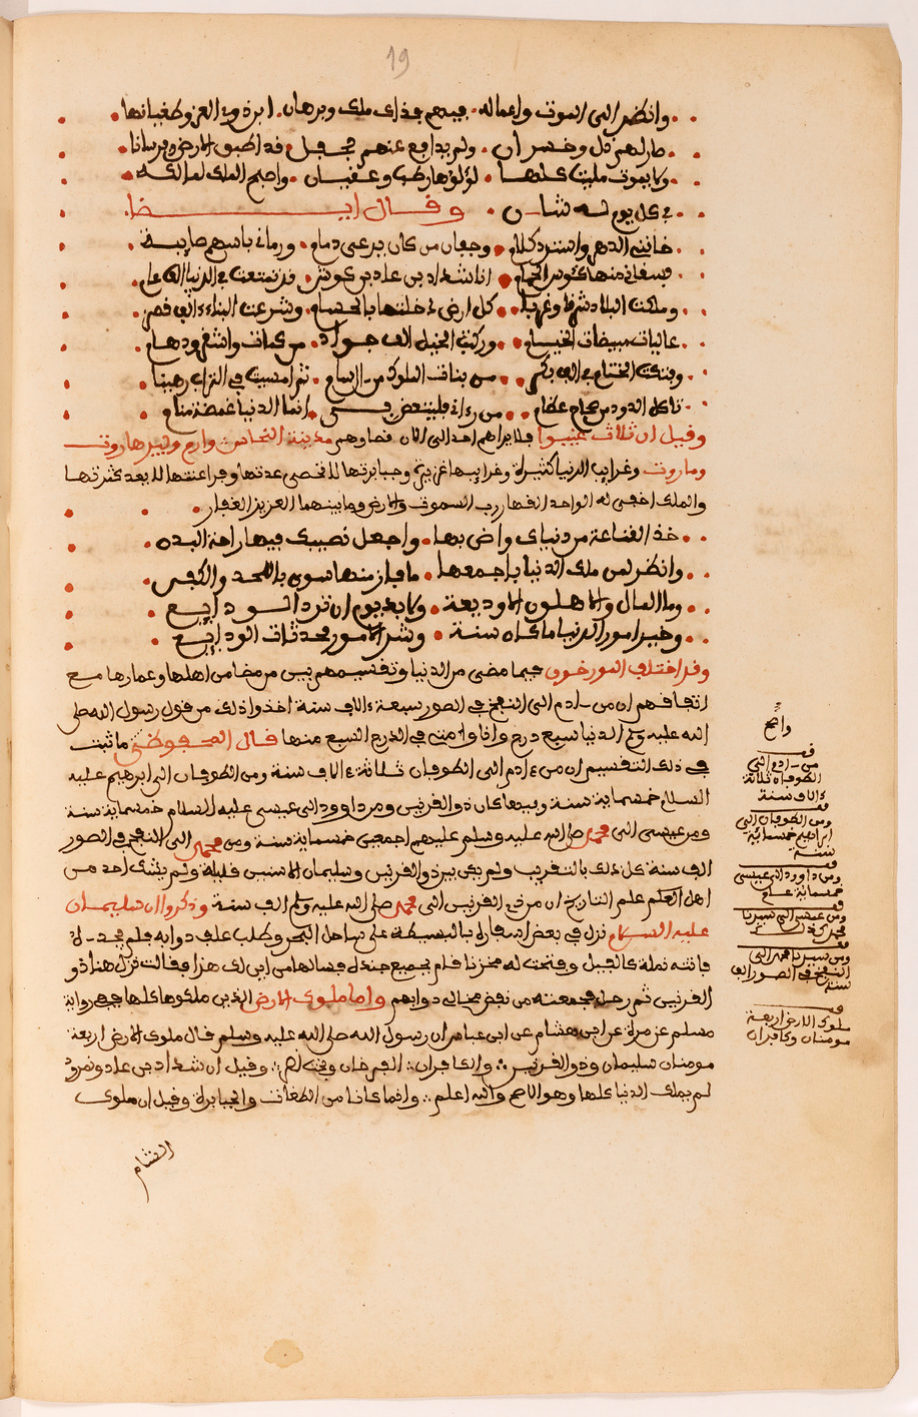 19
وانظر الى الموت واعماله فيهم فذاك ملك وبرهان اين ذوو العز وطغيانها
صار لهم ذل وخسران ولم يدافع عنهم جحفل قد اطبق الارض وفرسانا
ولا يفوت مليك كلها لؤلؤها رطب وعقيان واصبح الملك لمالكه
في كل يوم له شان وقال ايضا
خانني الدهر واسترد كلام وجفان من كان يرعى ذمام ورماني باسهم صايبة
فسقاني منها كئوس الحمام انا شداد بن عاد بن عوش قد تمتعت في الدنيا الف عام
وملكت البلاد شرقا وغربا كل ارض دخلتها بالحسام وشرعت البناء الف قصر
عاليات مبيضات الخيام وركبت الخيل الف جواد من كمات واشقر ودهام
وفتكت الختام في الف بكر من بنات الملوك من ال سام ثم امسيت في التراب رهينا
تاكل الدود من عظام من رءاني فليتعض بي انما الدنيا غمضة منام
وقيل ان ثلاث غيبوا فلا يراهم احد الى الان فصاوهم مدينة النحاس وارم وبير هاروت
وماروت وغرايب الدنيا كثيرة وغرايبها غزيرة وجبابرتها لا تحصى عدتها وفراعنتها لا بعد كثرتها
والملك اجمى له الواحد القهار رب السموت والارض وما بينهما العزيز الغفار
خذ القناعة من دنياك وارض بها واجعل نصيبك فيها راحة البدن
وانظر لمن ملك الدنيا باجمعها ما فاز منها سوى باللحد والكفن
وما المال والاهلون الا وديعة ولا بد يوم ان ترد الودايع
وخير امور الدنيا ما كان سنة وشر الامور محدثات الودايع
وقد اختلف المورخون فيما مضى من الدنيا وتقسيمهم بين من مضا من اهلها وعمارها مع
اتفاقهم ان من ادم الى النفخ في الصور سبعة ءالاف سنة اخذوا ذلك من قول رسول الله صلى
الله عليه وسلم الدنيا سبع درج وانا وامتي في الدرج السبع منها قال المحفوظي ما ثبت
في ذلك التقسيم ان من ءادم الى الطوفان ثلاثة ءالاف سنة ومن الطوفان الى ابرهيم عليه
السلام خمسماية سنة وبيدها كان ذو القرنين ومن داوود الى عيسى عليه السلام خمسماية سنة
ومن عيسى الى محمد صلى الله عليه وسلم عليهم اجمعين خمسماية سنة ومن محمد الى النفخ في الصور
الف سنة كل ذلك بالتقريب ولم يكن بين ذو القرنين وسليمان الا سنين قليلة ولم يشك احد من
اهل العلم علم التاريخ ان من ذي القرنين الى محمد صلى الله عليه وسلم الف سنة وذكروا ان سليمان
عليه السلام نزل في بعض اسفاره بالبسيطة على ساحل البحر وطلب علف دوابه فلم يجد لا
فاتته نملة كالجبل وفتحت له مخزنا قام بجميع جنده فسالها من اين لك هذا فقالت نزل هنا ذو
القرنين ثم رحل فجمعته من نفض مخالي دوابهم واما ملوك الارض الذين ملكوها كلها ففي رواية
مسلم عن مرة عن ابن هشام عن ابن عباس ان رسول الله صلى الله عليه وسلم قال ملوك الارض اربعة
مومنان سليمان وذو القرنين والكافران الفرخان وبخت نصر وقيل ان شداد بن عاد ونمرود
لم يملك الدنيا كلها وهو الاصح والله اعلم وانما كانا من الطغات والجبابرة وقيل ان ملوك
الشام
واضح
قف
من ادم الى
الطوفان ثلاثة
ءالاف سنة
قف
ومن الطوفان الى
ابراهيم خمسماية
سنة
قف
ومن داوود الى عيسى
خمسماية عام
قف
ومن عيسى الى سيدنا
محمد
قف
ومن سيدنا محمد الى
النفخ في الصور الف
سنة
قف
ملوك الارض اربعة
مومنان وكافران